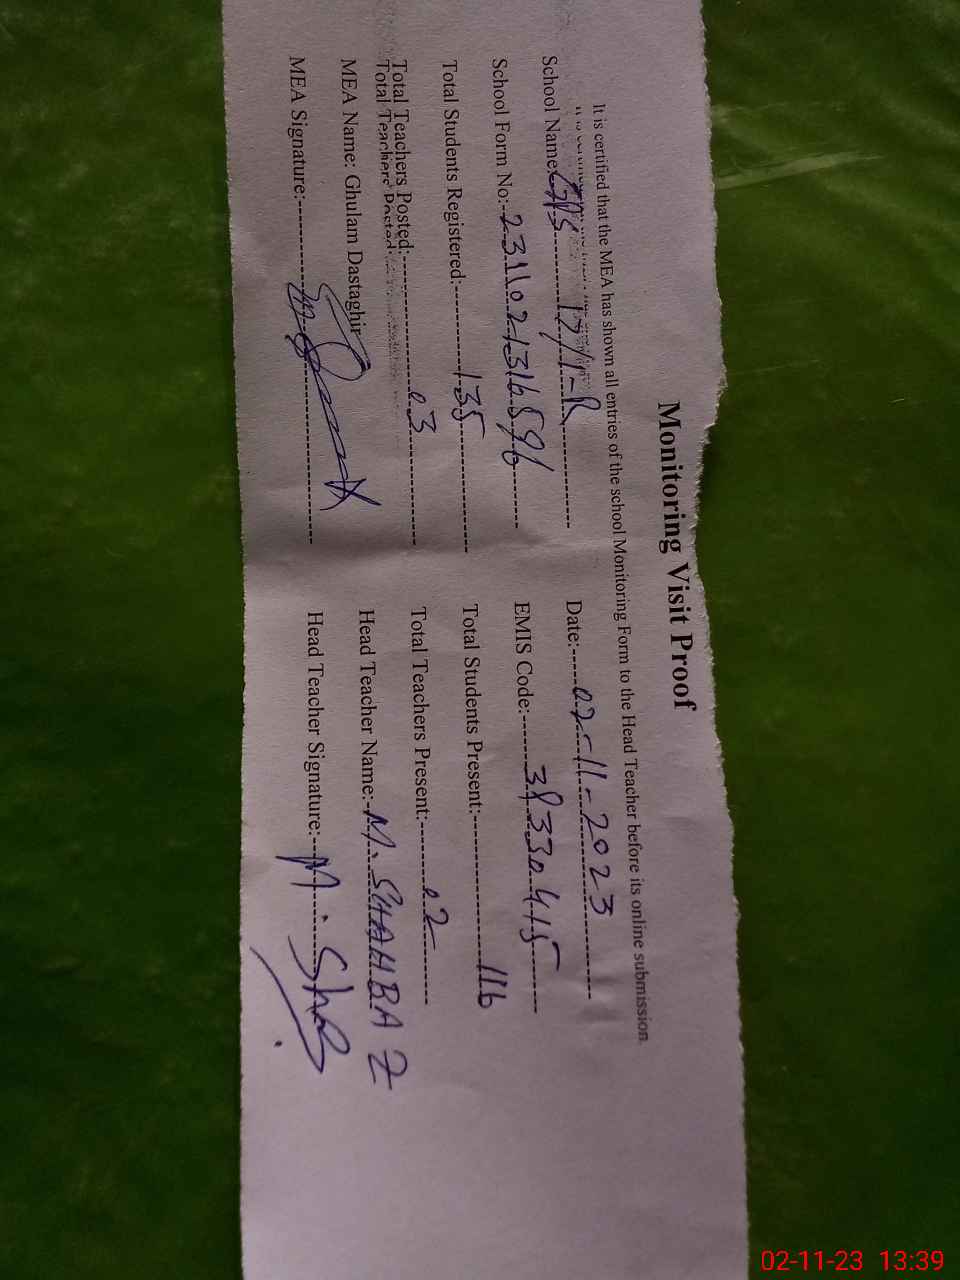 Monitoring Visit Proof
It is certified that the MEA has shown all entries of the school Monitoring Form to the Head Teacher before its online submission.
School Name: GPS 17/1-R Date: 02-11-2023
School Form No: 231102131659 6 EMIS Code: 38330415
Total Students Registered: 135 Total Students Present: 116
Total Teachers Posted: 03 Total Teachers Present: 02
Total Teachers Posted:
MEA Name: Ghulam Dastaghir Head Teacher Name: M. SHAHBAZ
MEA Signature: Head Teacher Signature: M. Shb
02-11-23 13:39